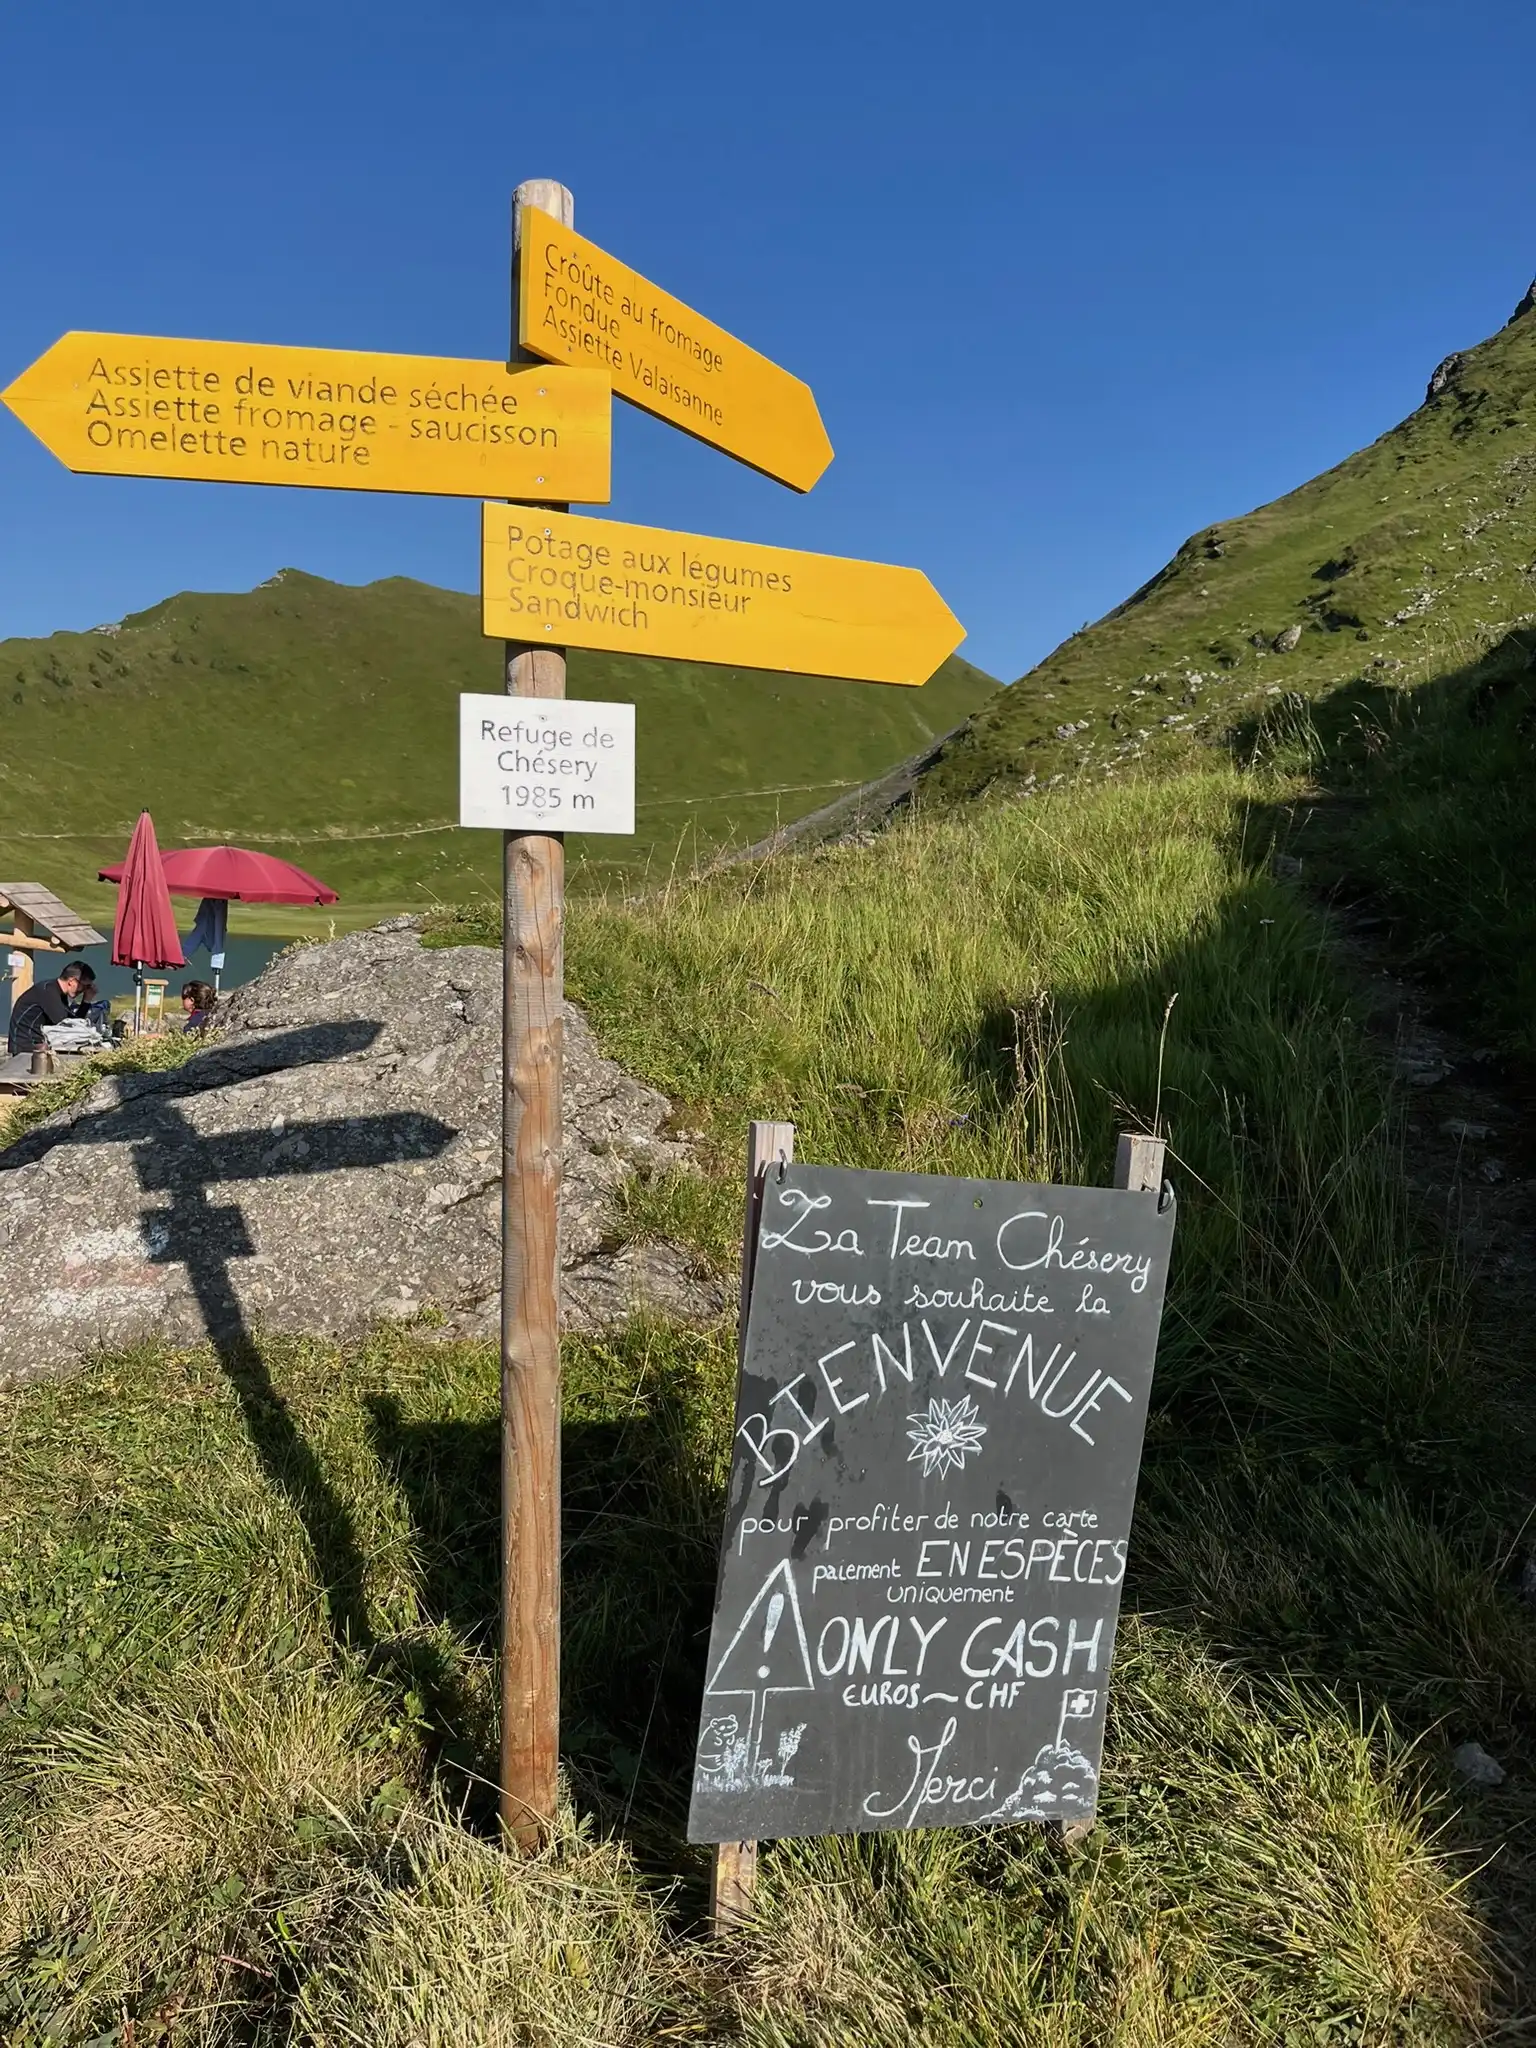 Croûte au fromage
Fondue
Assiette Valaisanne
Assiette de viande séchée
Assiette fromage - saucisson
Omelette nature
Potage aux légumes
Croque-monsieur
Sandwich
Refuge de
Chésery
1985 m
La Team Chésery
vous souhaite la
BIENVENUE
pour profiter de notre carte
paiement EN ESPÈCES
uniquement
! ONLY CASH
EUROS ~ CHF
Merci